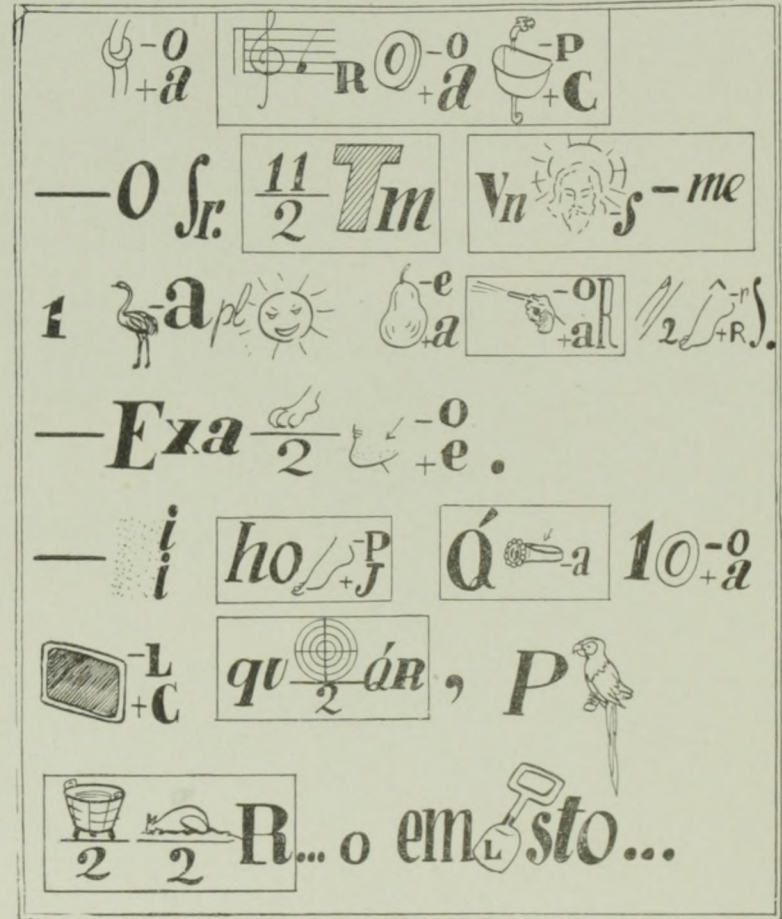 -o +a R -o +a -P +C
—O Sr. 11/2 Tm Vn -s - me
1 -a pl -e +a -o +aR 2 ^ -r +R S.
—Exa 2 -o +e .
— i i ho -P +J Q' -a 10 -o +a
-L +C qu 2 áR, P
2 2 R... o em L sto...